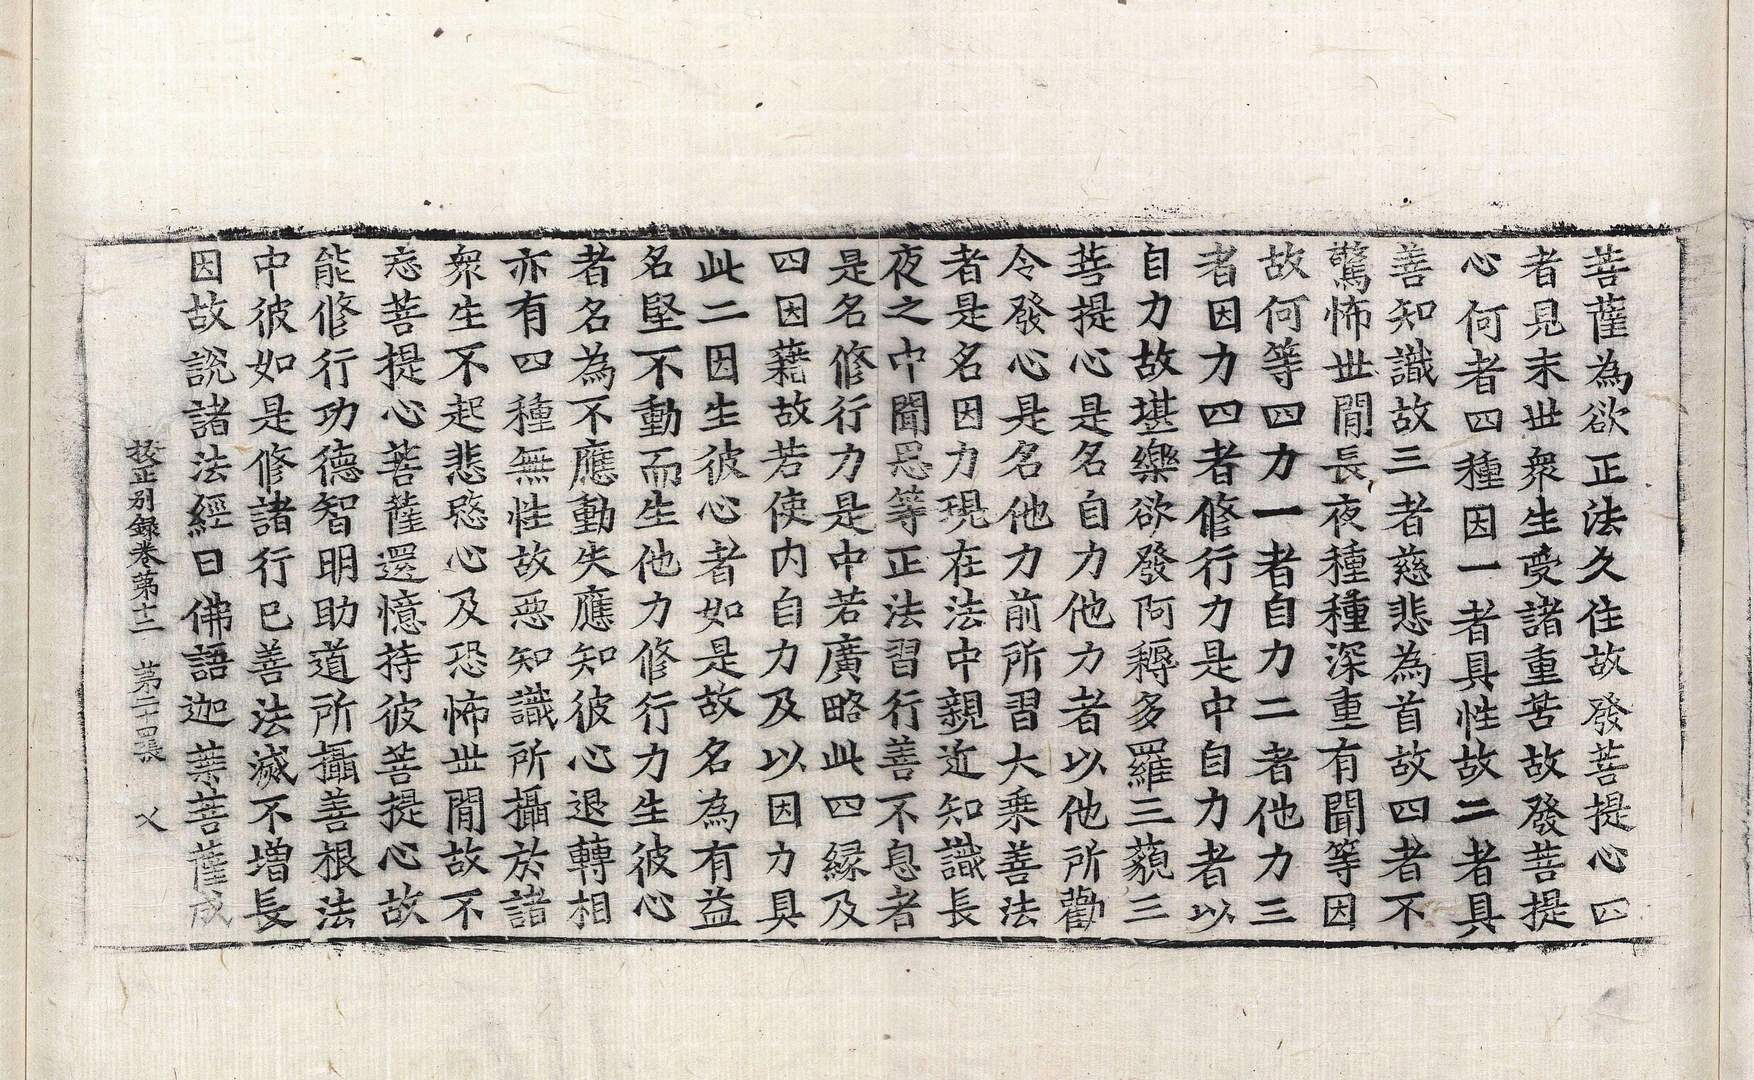 菩薩為欲正法久住故發菩提心四
者見末世衆生受諸重苦故發菩提
心何者四種因一者具性故二者具
善知識故三者慈悲為首故四者不
驚怖世閒長夜種種深重有聞等因
故何等四力一者自力二者他力三
者因力四者修行力是中自力者以
自力故堪樂欲發阿耨多羅三藐三
菩提心是名自力他力者以他所勸
令發心是名他力前所習大乗善法
者是名因力現在法中親近知識長
夜之中聞思等正法習行善不息者
是名修行力是中若廣略此四縁及
四因藉故若使内自力及以因力具
此二因生彼心者如是故名為有益
名堅不動而生他力修行力生彼心
者名為不應動失應知彼心退轉相
亦有四種無性故惡知識所攝於諸
衆生不起悲愍心及恐怖世閒故不
忘菩提心菩薩還憶持彼菩提心故
能修行功德智明助道所攝善根法
中彼如是修諸行巳善法滅不增長
因故說諸法經曰佛語迦葉菩薩成
挍正别録卷第十二 第二十四張 㐅